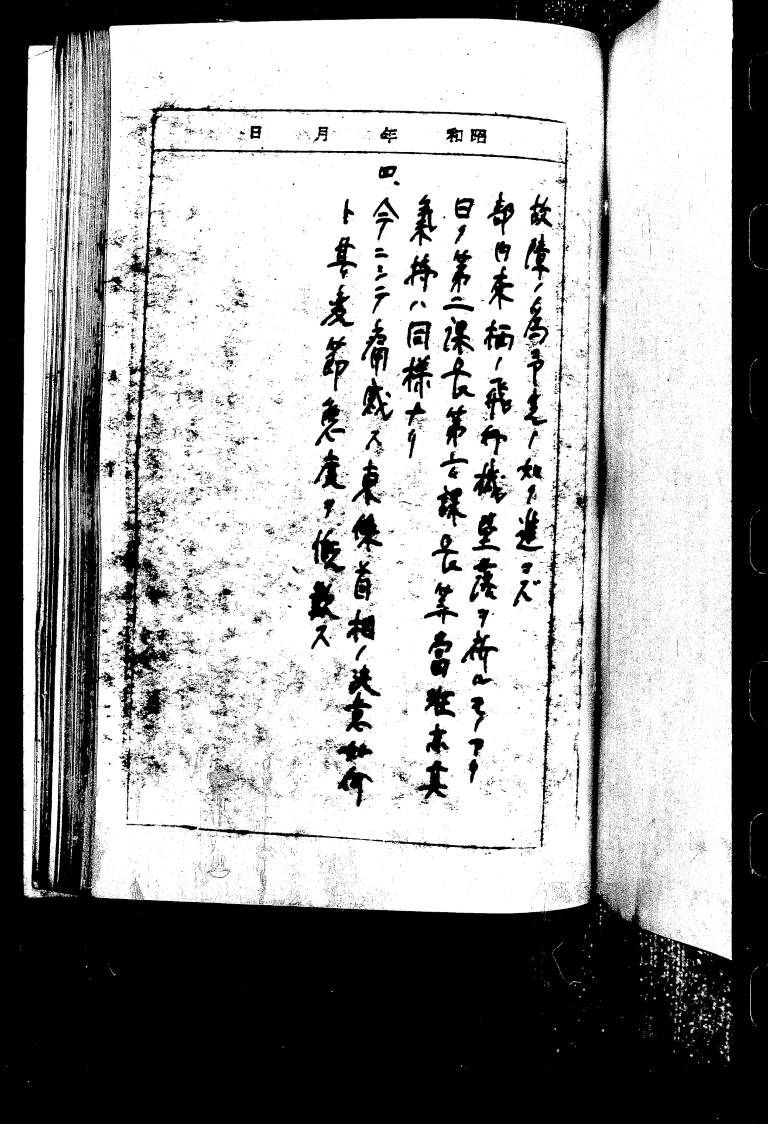 昭和 年 月 日
故障ノ為予定ノ如ク進マズ
部内来栖ノ飛行機墜落ヲ祈ルモノアリ
曰ク第二課長第六課長等當班亦其
氣持ハ同様ナリ
四、今ニシテ痛感ス東條首相ノ決意如何
ト其変節態度ヲ慨歎ス